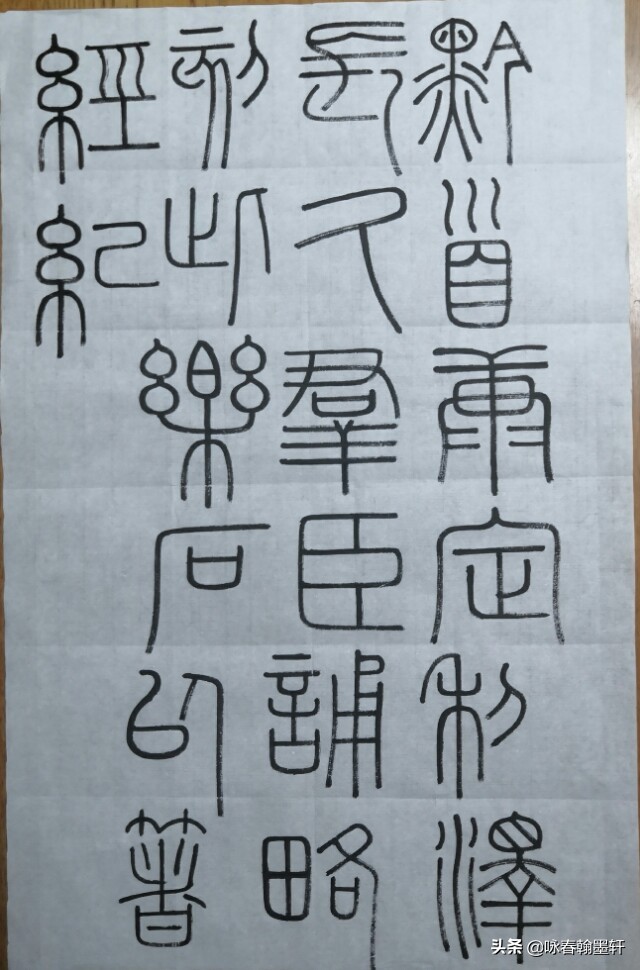 黔首康定利澤
長久羣臣誦略
刻此樂石以著
經紀
头条 @咏春翰墨轩